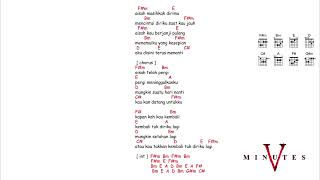 F#m E
aisah masihkah dirimu
Bm F#m
mencintai diriku saat kau jauh
F#m E
aisah kau berjanji pulang
Bm F#m
menemuiku yang kesepian
D E C#m
aku disini terus menanti
[ chorus ]
F#m Bm
aisah telah pergi
E A
pergi meninggalkanku
D Bm
mungkin suatu hari nanti
C#m
kau kan datang untukku
F#m Bm
kapan kah kau kembali
E A
kembali tuk diriku lagi
D Bm
mungkin setahun lagi
C#m D E F#m
atau kau takkan kembali tuk diriku lagi
[ int ] F#m Bm F#m Bm
F#m E F#m
Bm E A D Bm E A F#
Bm E A D Bm G#m C#
F#m Bm E D
C#m A F# G#m
V
MINUTES